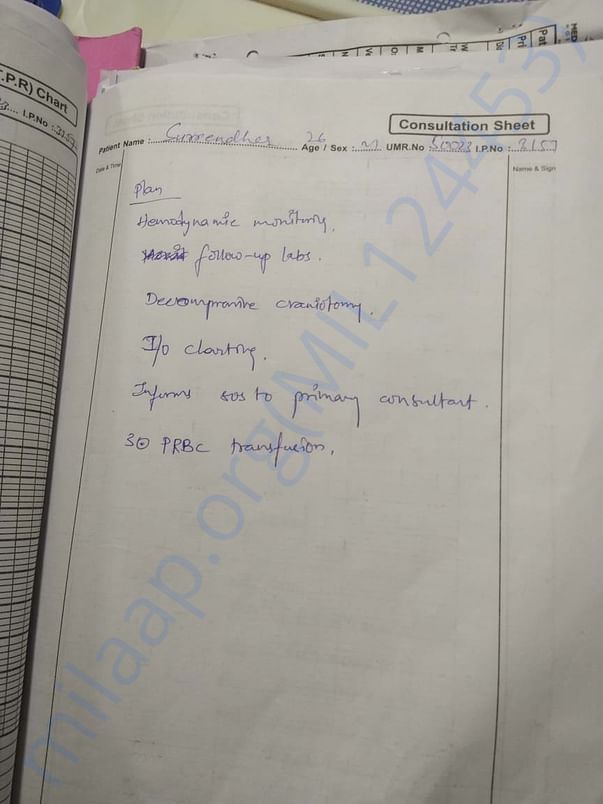 .P.R) Chart
I.P.No : 3157
Consultation Sheet
Patient Name : Surrendher Age / Sex : 26 M UMR.No I.P.No : 3157
Date & Time
Name & Sign
Plan
Hemodynamic monitoring.
follow-up labs.
Decompramive craniotomy.
I/o charting.
Informs sos to primary consultant.
PRBC transfusion.
milaap.org(MIL1244537)